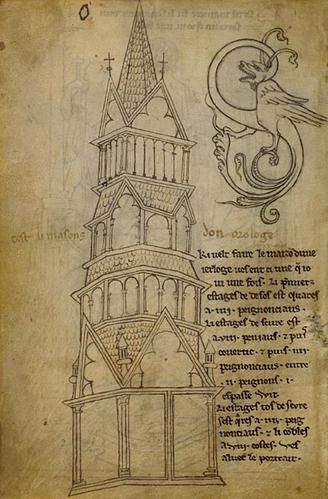 cest li masons don orologe
Ki velt faire le maizon dune
ierloge ves ent ci une q̃ io
vi une fois. Li p̃mier
estages de desos est quares
a .iiii. peignonciaus.
Li estages de seure est
a .viii. peniaus. ⁊ puis
covertic. ⁊ puis .iiii.
peignonciaus. entre
.ii. peignons .i.
espasse wit.
Li estages tos de seure
sest q̃res a .iiii. peig
nonciaus. ⁊ li cobles
a .viii. costes. ves
aluec le portrait.